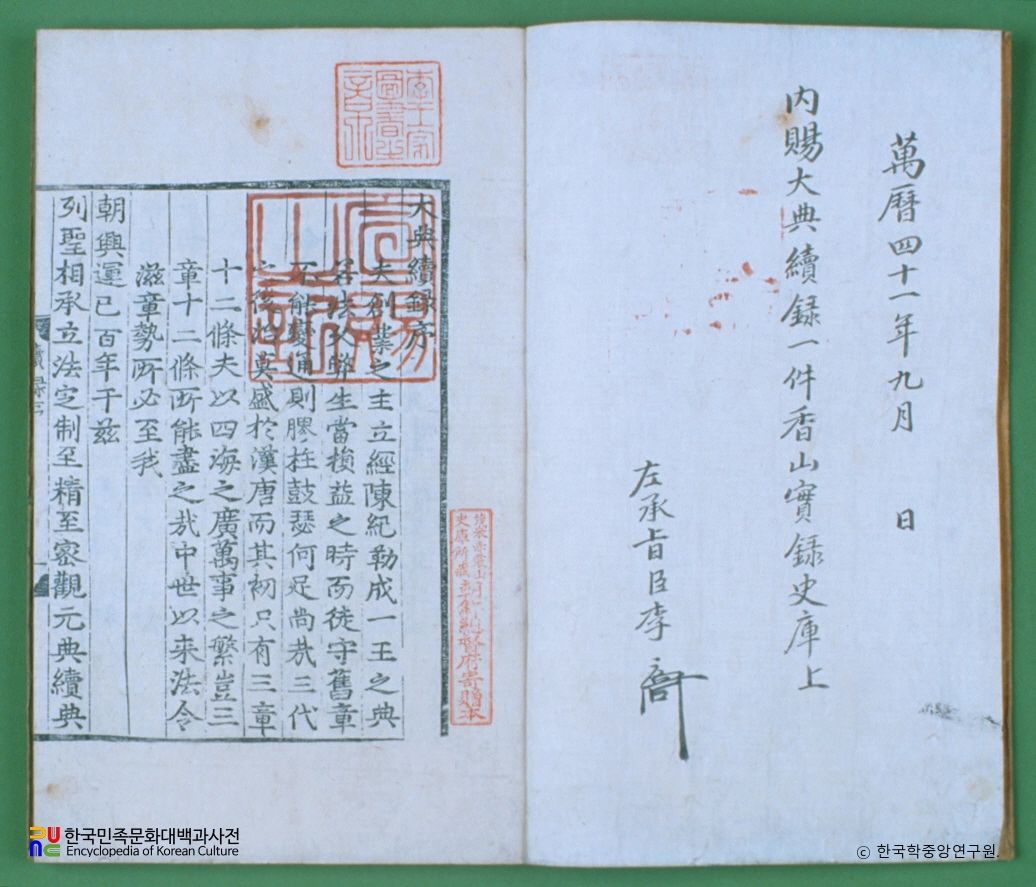 萬曆四十一年九月 日
內賜大典續錄一件香山實錄史庫上
左承旨臣李
李王家圖書之章
大典續錄序
夫創業之主立經陳紀勒成一王之典
若法久弊生當損益之時而徒守舊章
不能變通則膠柱鼓瑟何足尚哉三代
之後治莫盛於漢唐而其初只有三章
十二條夫以四海之廣萬事之繁豈三
章十二條所能盡之哉中世以來法令
滋章勢所必至我
朝興運已百年于茲
列聖相承立法定制至精至密觀元典續典
茂朱赤裳山
史庫所藏
朝鮮總督府寄贈本
한국민족문화대백과사전
Encyclopedia of Korean Culture
© 한국학중앙연구원